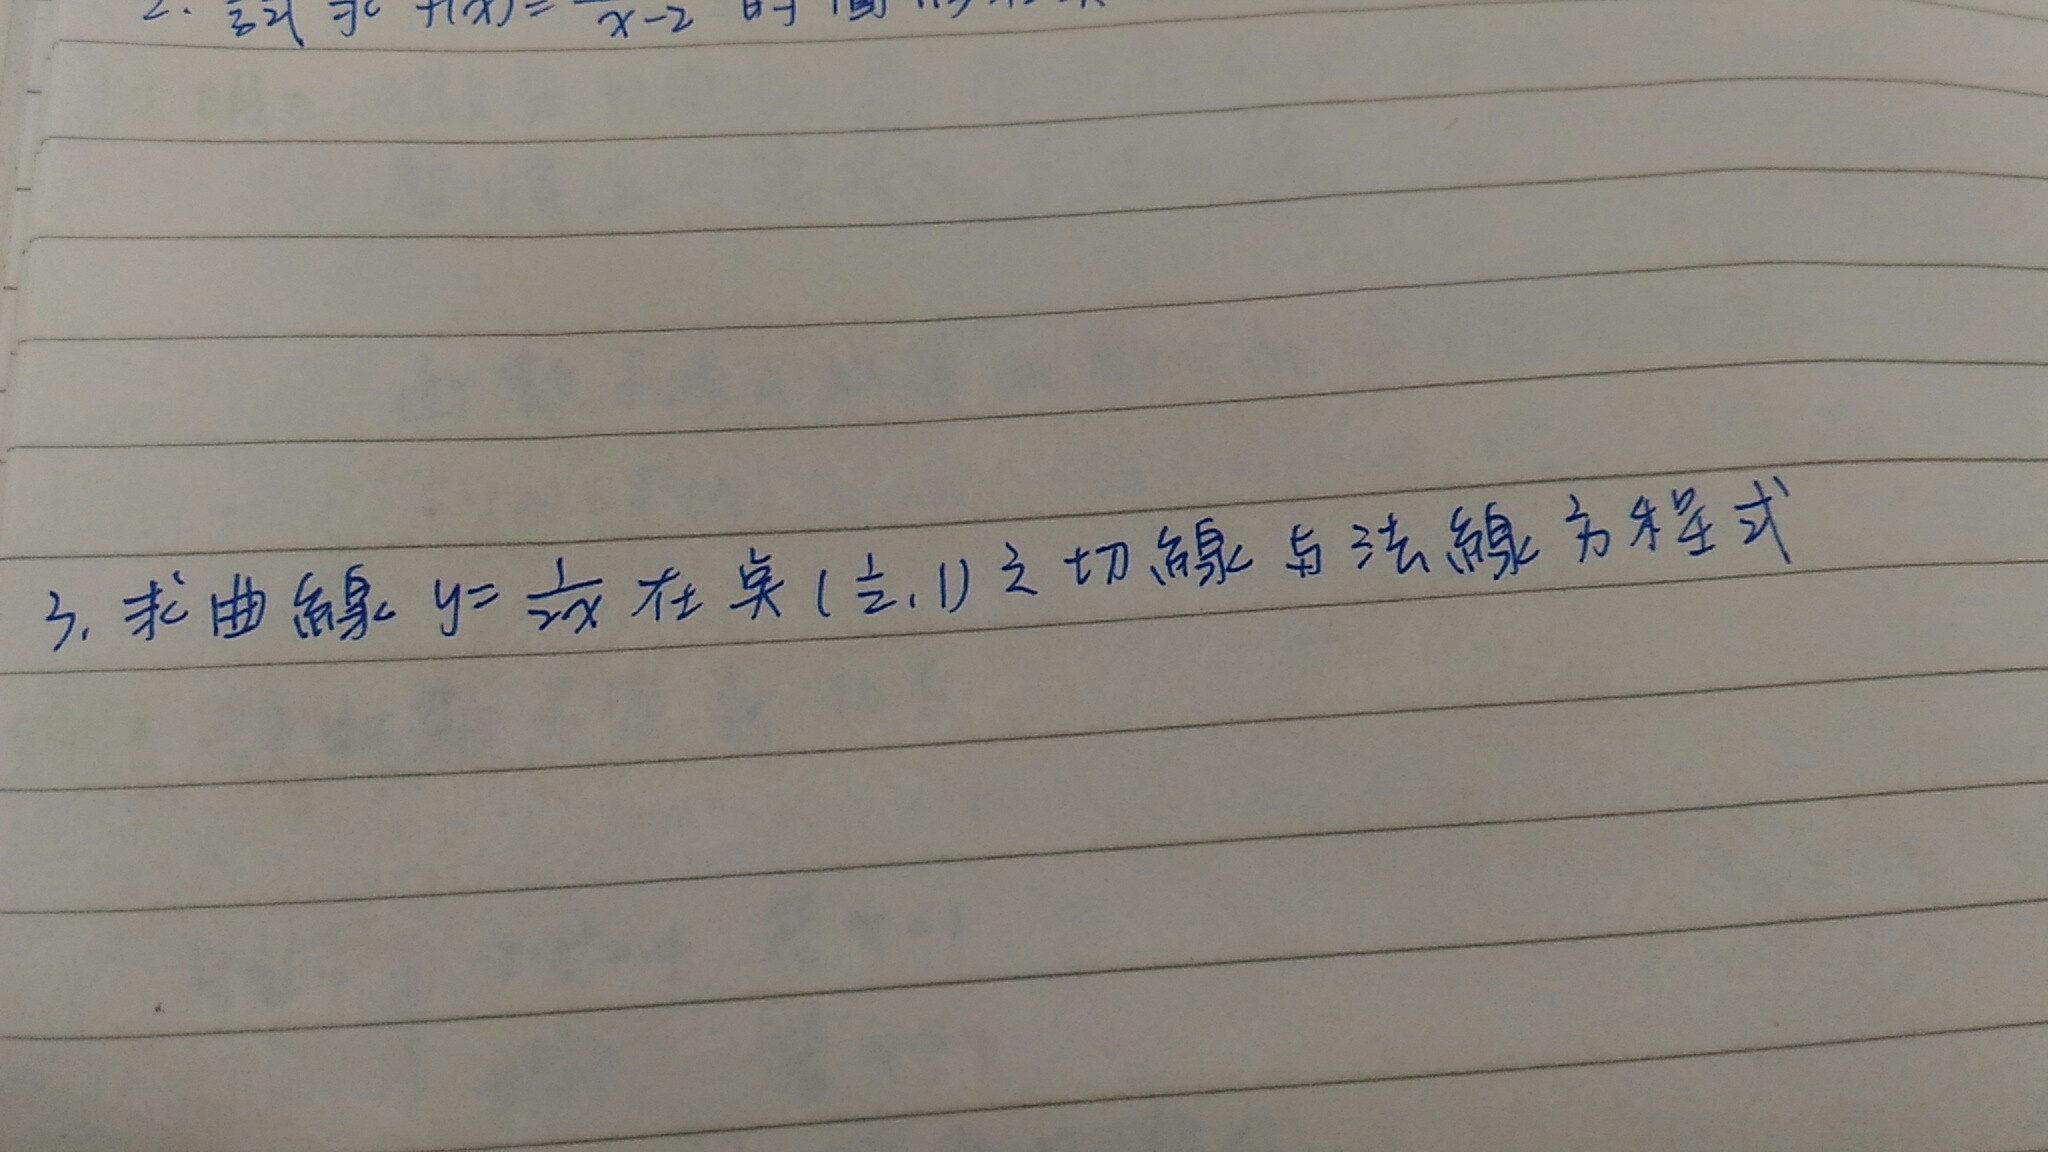 2. 試求 f(x)= x-2 的
3. 求曲線 y=1/2x 在点 (1/2, 1) 之切線与法線方程式